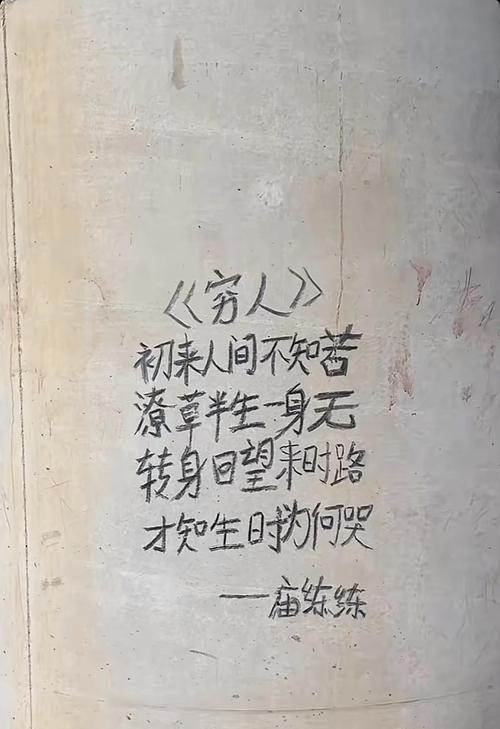 《穷人》
初来人间不知苦
潦草半生一身无
转身回望来时路
才知生时为何哭
——庙练练